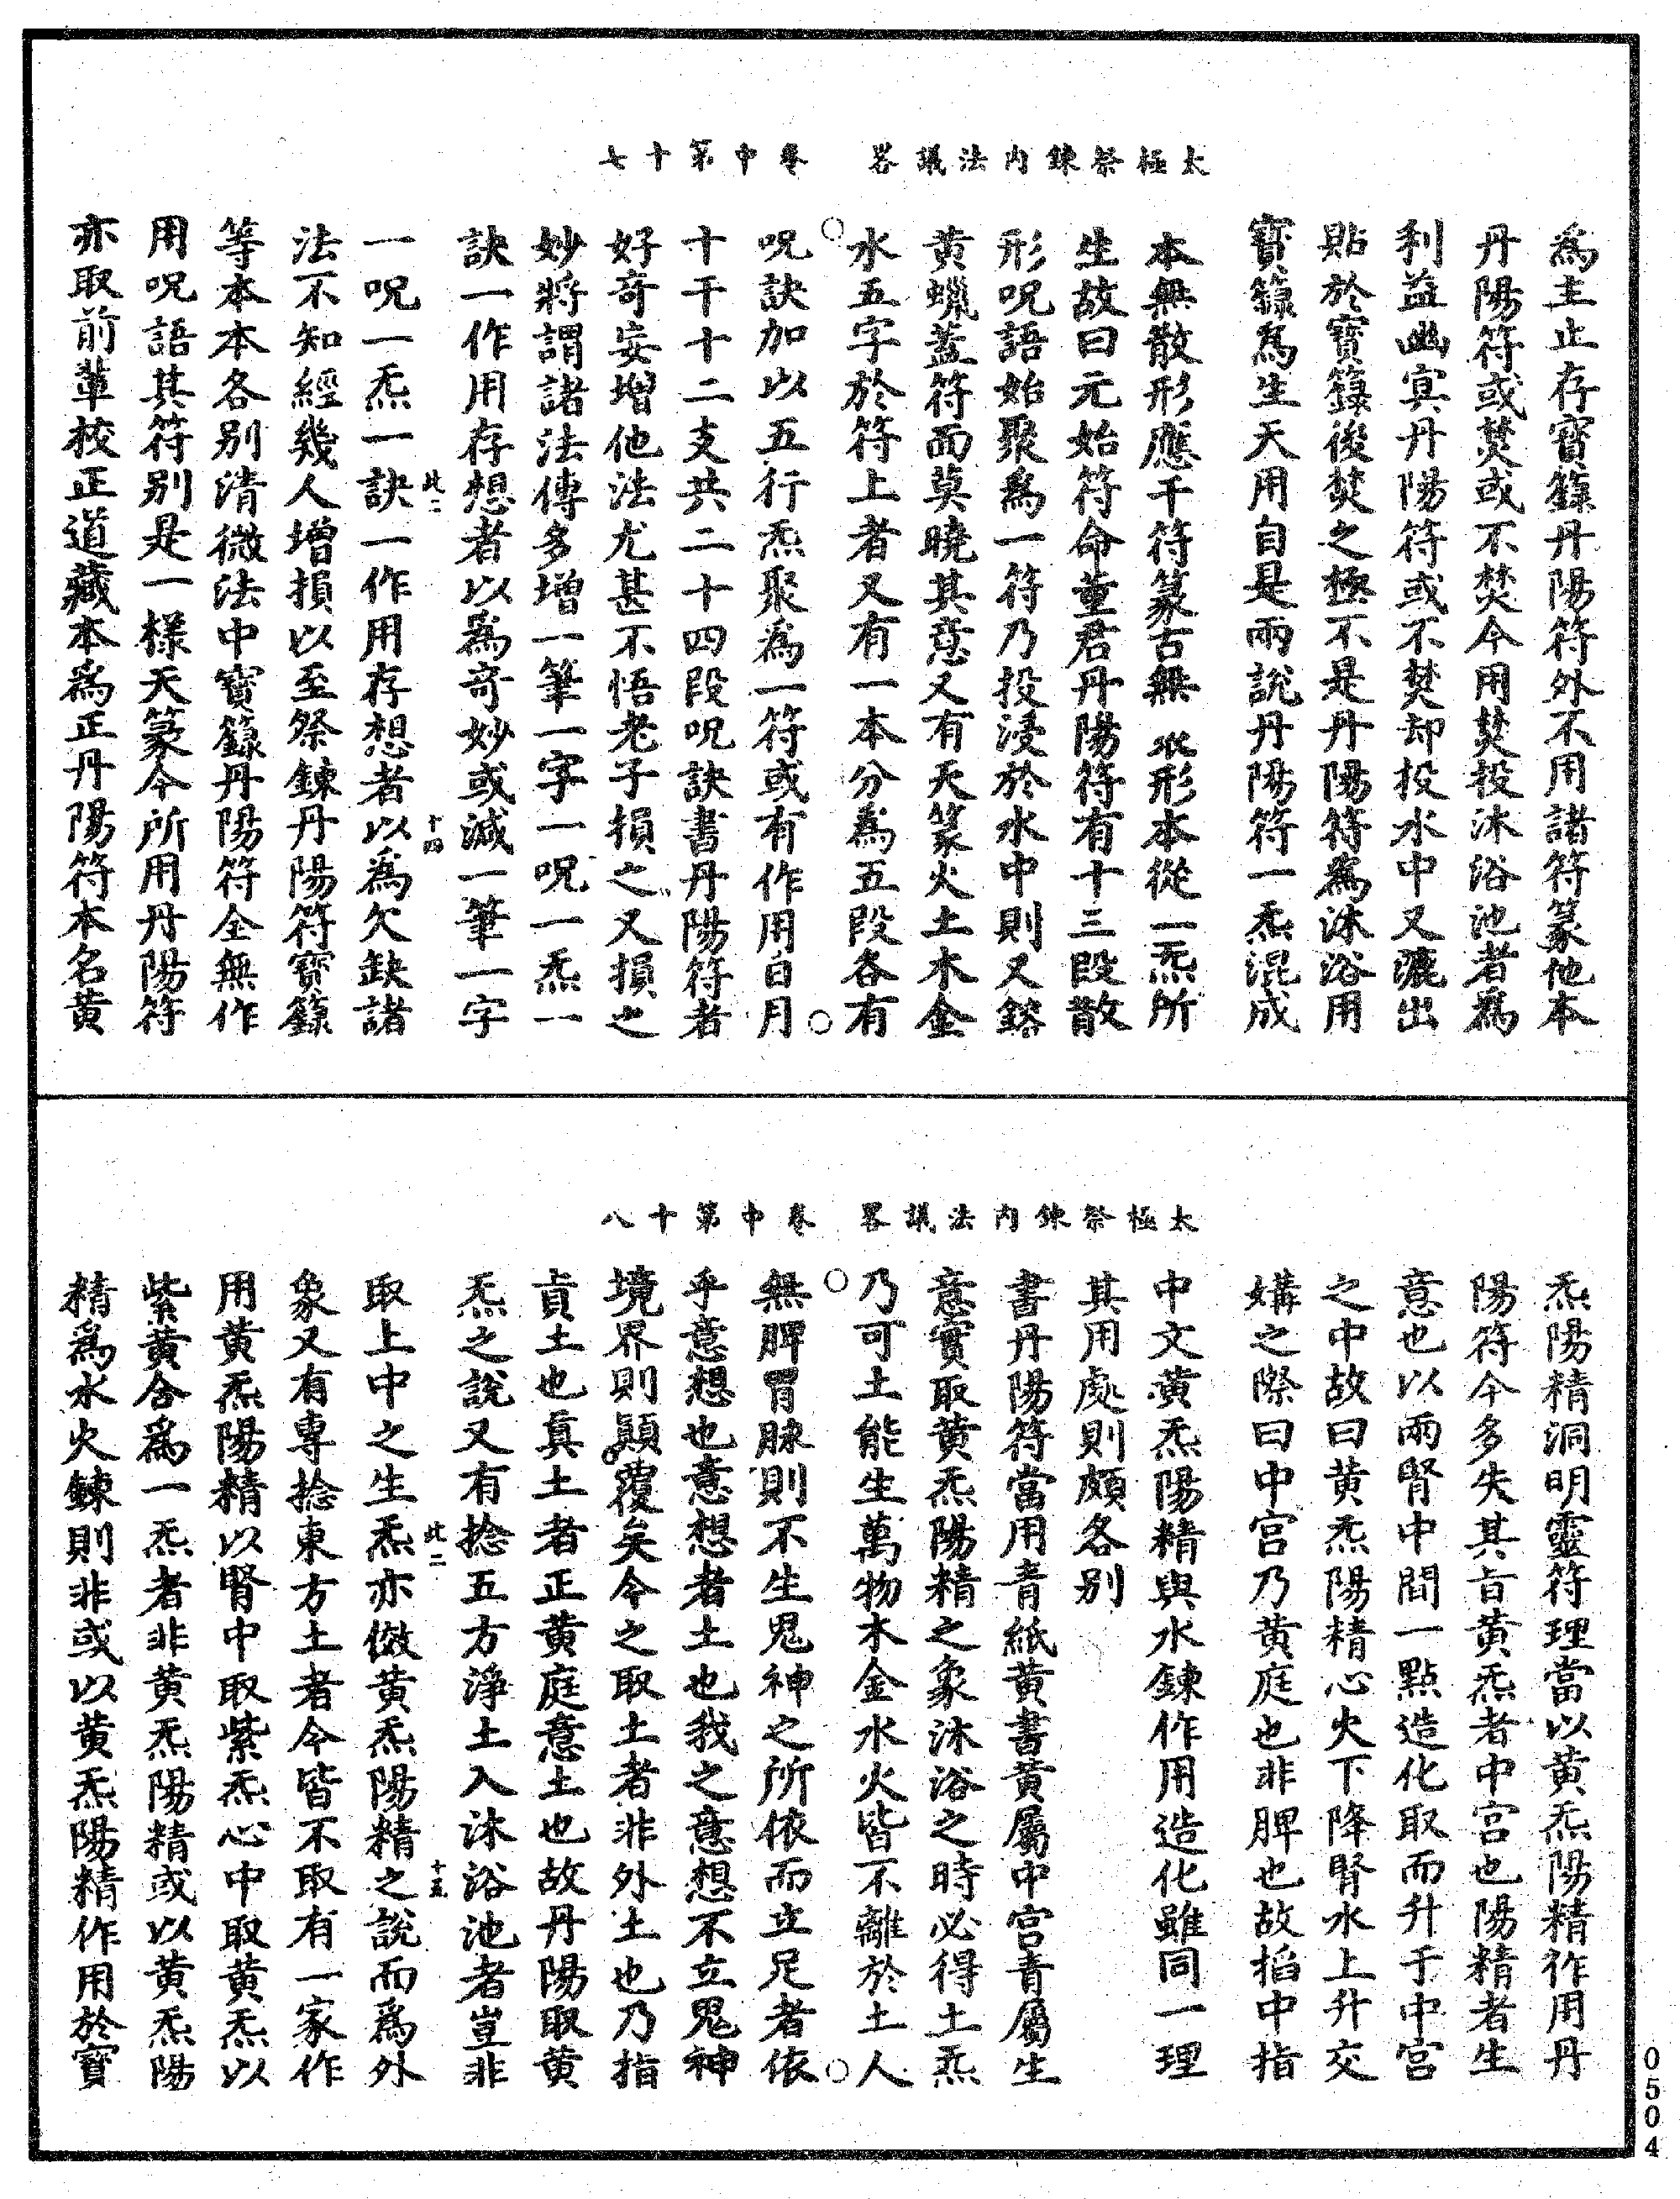 太極祭鍊內法議畧　卷中第十七
為主止存寶籙丹陽符外不用諸符篆他本
丹陽符或焚或不焚今用焚投沐浴池者為
利益幽冥丹陽符或不焚却投水中又漉出
貼於寶籙後焚之極不是丹陽符為沐浴用
寶籙為生天用自是兩說丹陽符一炁混成
本無散形應千符篆古無散形本從一炁所
生故曰元始符命董君丹陽符有十三段散
形呪語始聚為一符乃投浸於水中則又鎔
黃蠟蓋符而莫曉其意又有天篆火土木金
水五字於符上者又有一本分為五段各有
呪訣加以五行炁聚為一符或有作用日月
十干十二支共二十四段呪訣書丹陽符者
好奇妄增他法尤甚不悟老子損之又損之
妙將謂諸法傳多增一筆一字一呪一炁一
訣一作用存想者以為奇妙或減一筆一字
一呪一炁一訣一作用存想者以為欠缺諸
此二
十四
法不知經幾人增損以至祭鍊丹陽符寶籙
等本本各別清微法中寶籙丹陽符全無作
用呪語其符別是一樣天篆今所用丹陽符
亦取前輩校正道藏本為正丹陽符本名黃
太極祭鍊內法議畧　卷中第十八
炁陽精洞明靈符理當以黃炁陽精作用丹
陽符今多失其旨黃炁者中宮也陽精者生
意也以兩腎中間一點造化取而升于中宮
之中故曰黃炁陽精心火下降腎水上升交
媾之際曰中宮乃黃庭也非脾也故掐中指
中文黃炁陽精與水鍊作用造化雖同一理
其用處則頗各別
書丹陽符當用青紙黃書黃屬中宮青屬生
意實取黃炁陽精之象沐浴之時必得土炁
乃可土能生萬物木金水火皆不離於土人
無脾胃脉則不生鬼神之所依而立足者依
乎意想也意想者土也我之意想不立鬼神
境界則顛覆矣今之取土者非外土也乃指
真土也真土者正黃庭意土也故丹陽取黃
炁之說又有捻五方淨土入沐浴池者豈非
此二
十五
取上中之生炁亦倣黃炁陽精之說而為外
象又有專捻東方土者今皆不取有一家作
用黃炁陽精以腎中取紫炁心中取黃炁以
紫黃合為一炁者非黃炁陽精或以黃炁陽
精為水火鍊則非或以黃炁陽精作用於寶
0504